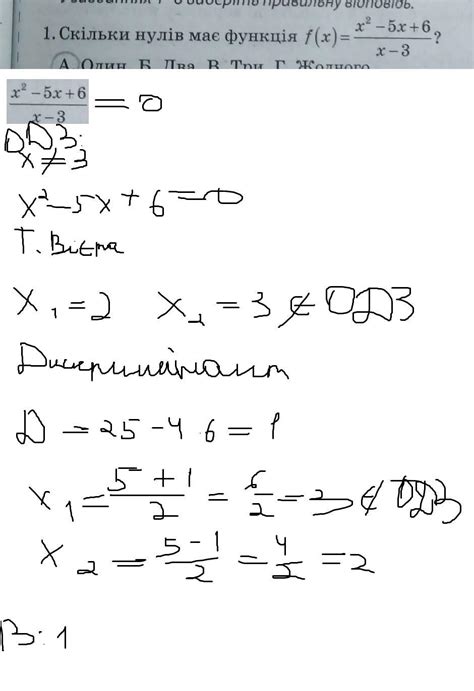 правильну відповідь.
1. Скільки нулів має функція f(x) = (x² − 5x + 6)/(x − 3)?
А Один Б Два В Три Г Жодного
(x² − 5x + 6)/(x − 3) = 0
ОДЗ:
x ≠ 3
x² − 5x + 6 = 0
Т. Вієта
x₁ = 2 x₂ = 3 ∉ ОДЗ
Дискримінант
D = 25 − 4 6 = 1
x₁ = (5 + 1)/2 = 6/2 = 3 ∉ ОДЗ
x₂ = (5 − 1)/2 = 4/2 = 2
В: 1